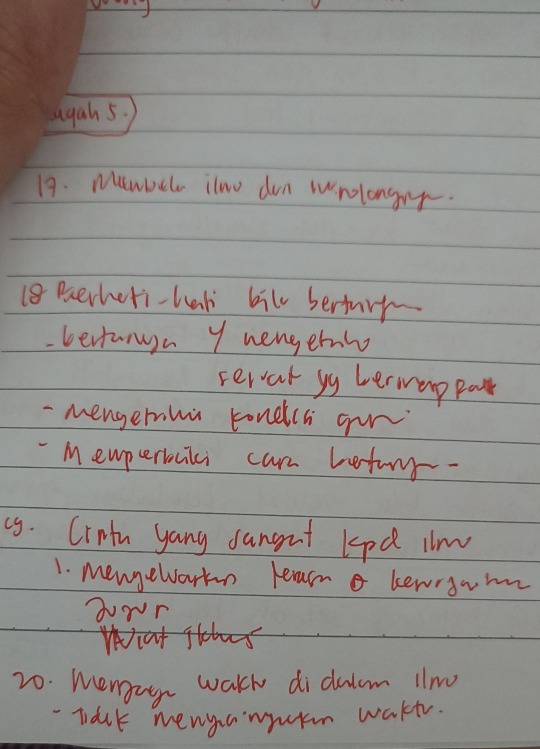 17. Membela ilmu dan menolongnya.
18 Berhati-hati bila bertanya
- bertanya y mengetahui
sesuat yg bermanfaat
- Mengetahui kondisi guru
- Memperbaiki cara bertanya -
19. Cinta yang sangat kpd ilmu
1. Mengeluarkan
jujur
Niat ikhlas
20. Menjaga waktu di dalam ilmu
- Tidak menyia-nyiakan waktu.